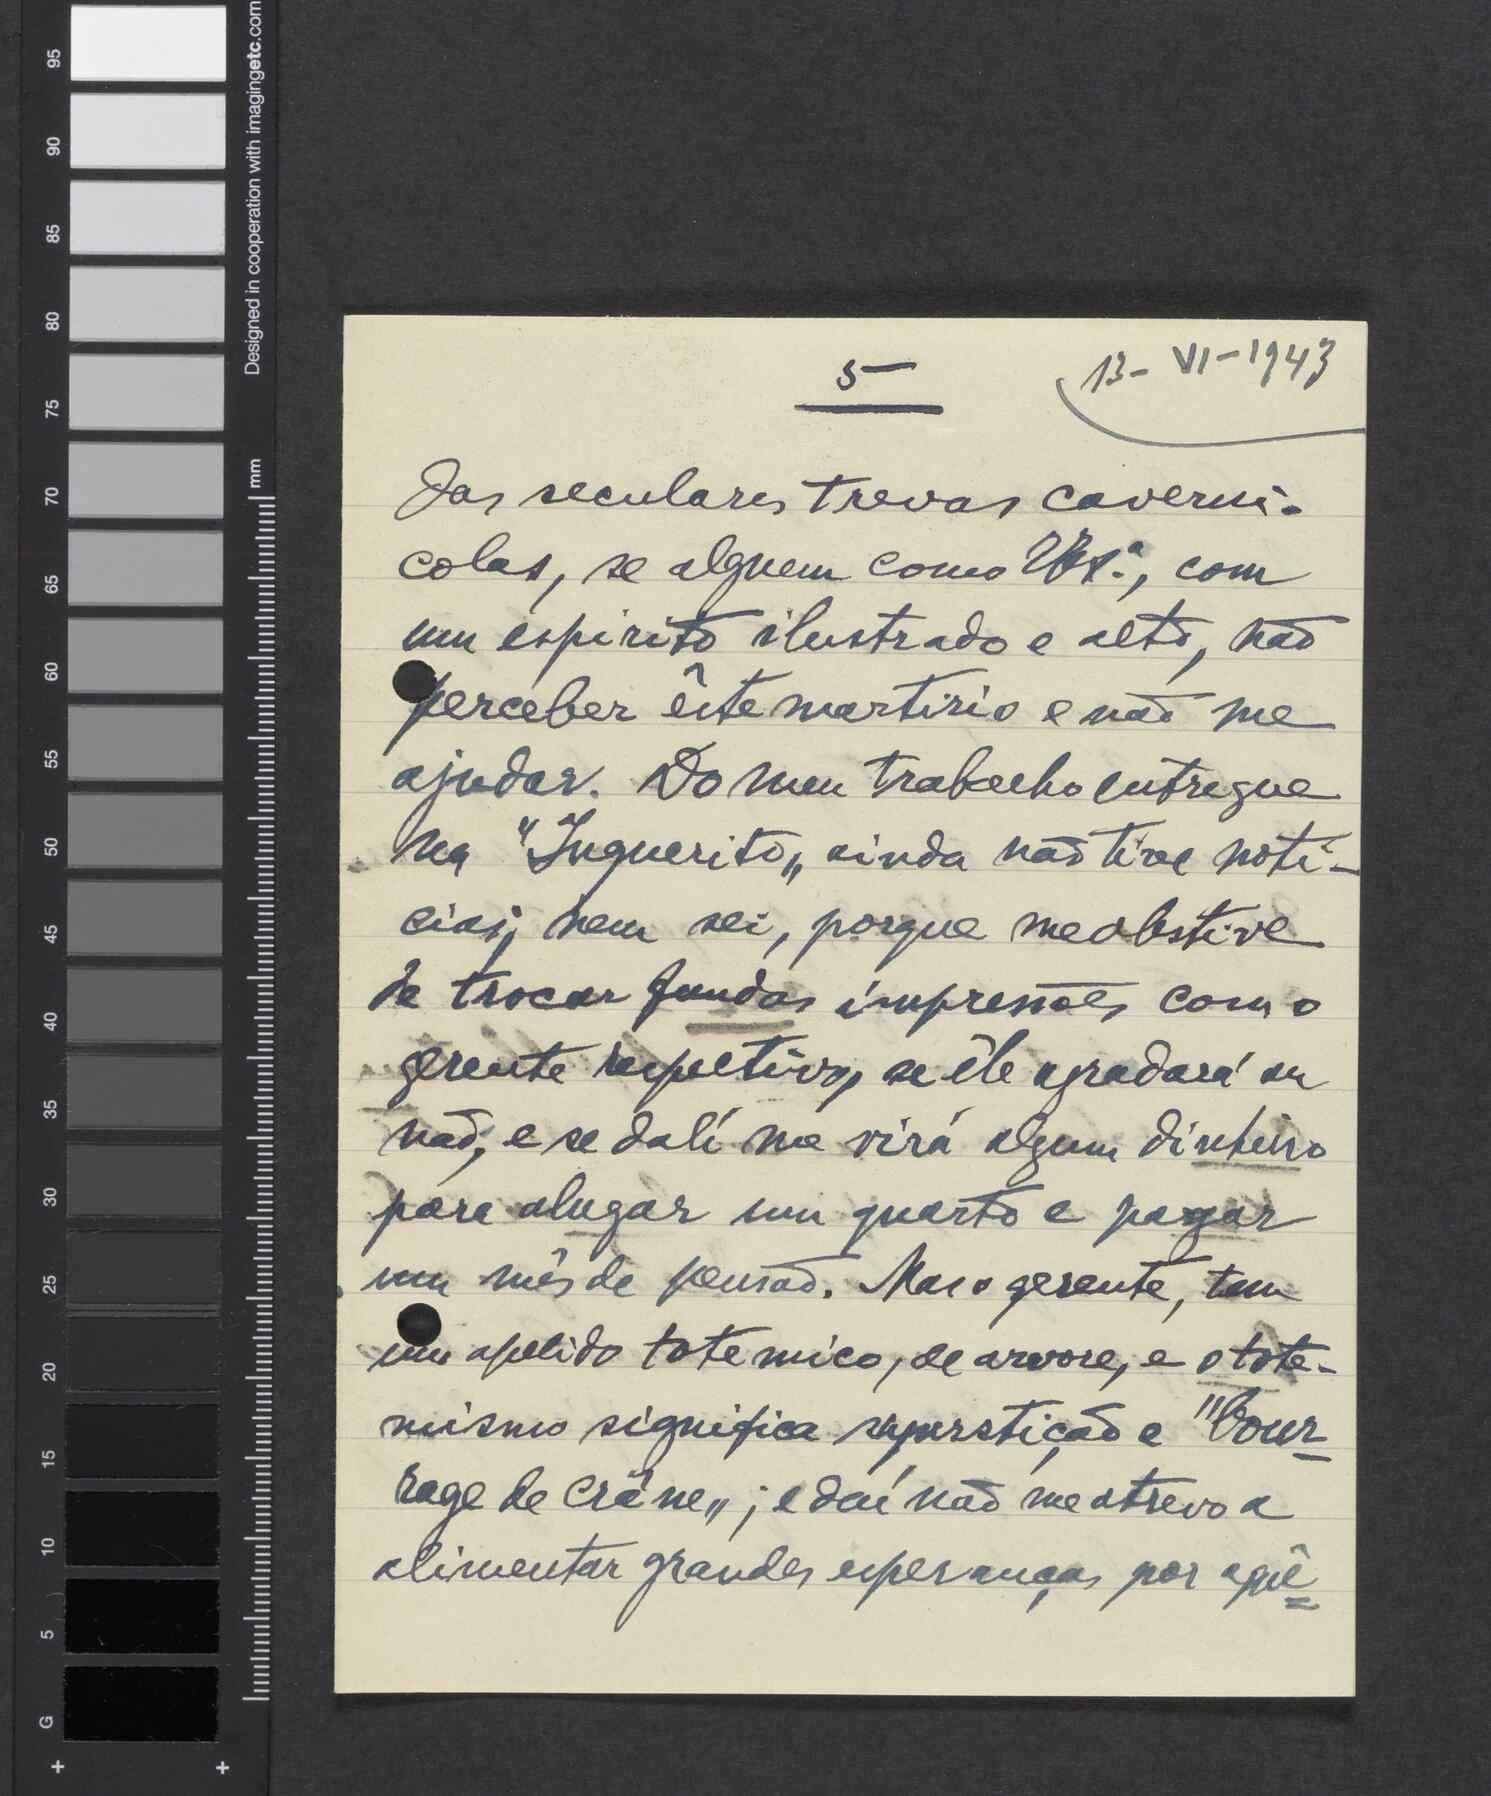 Designed in cooperation with imagingetc.com
mm
95
90
85
80
75
70
65
60
55
50
45
40
35
30
25
20
15
10
5
G
5-
13-VI-1943
das seculares trevas caverni-
colas, se alguem como V. Ex.ª, com
um espirito ilustrado e alto, não
perceber êste martirio e não me
ajudar. Do meu trabalho entregue
na "Inquerito„ ainda não tive noti-
cias; nem sei, porque me abstive
de trocar fundas impressões com o
gerente respetivo, se êle agradará ou
não, e se dalí me virá algum dinheiro
para alugar um quarto e pagar
um mês de pensão. Mas o gerente, tem
um apelido totemico, de arvore, e o tote-
mismo significa superstição e "bour-
rage de crâne„; e daí não me atrevo a
alimentar grandes esperanças por aquê=